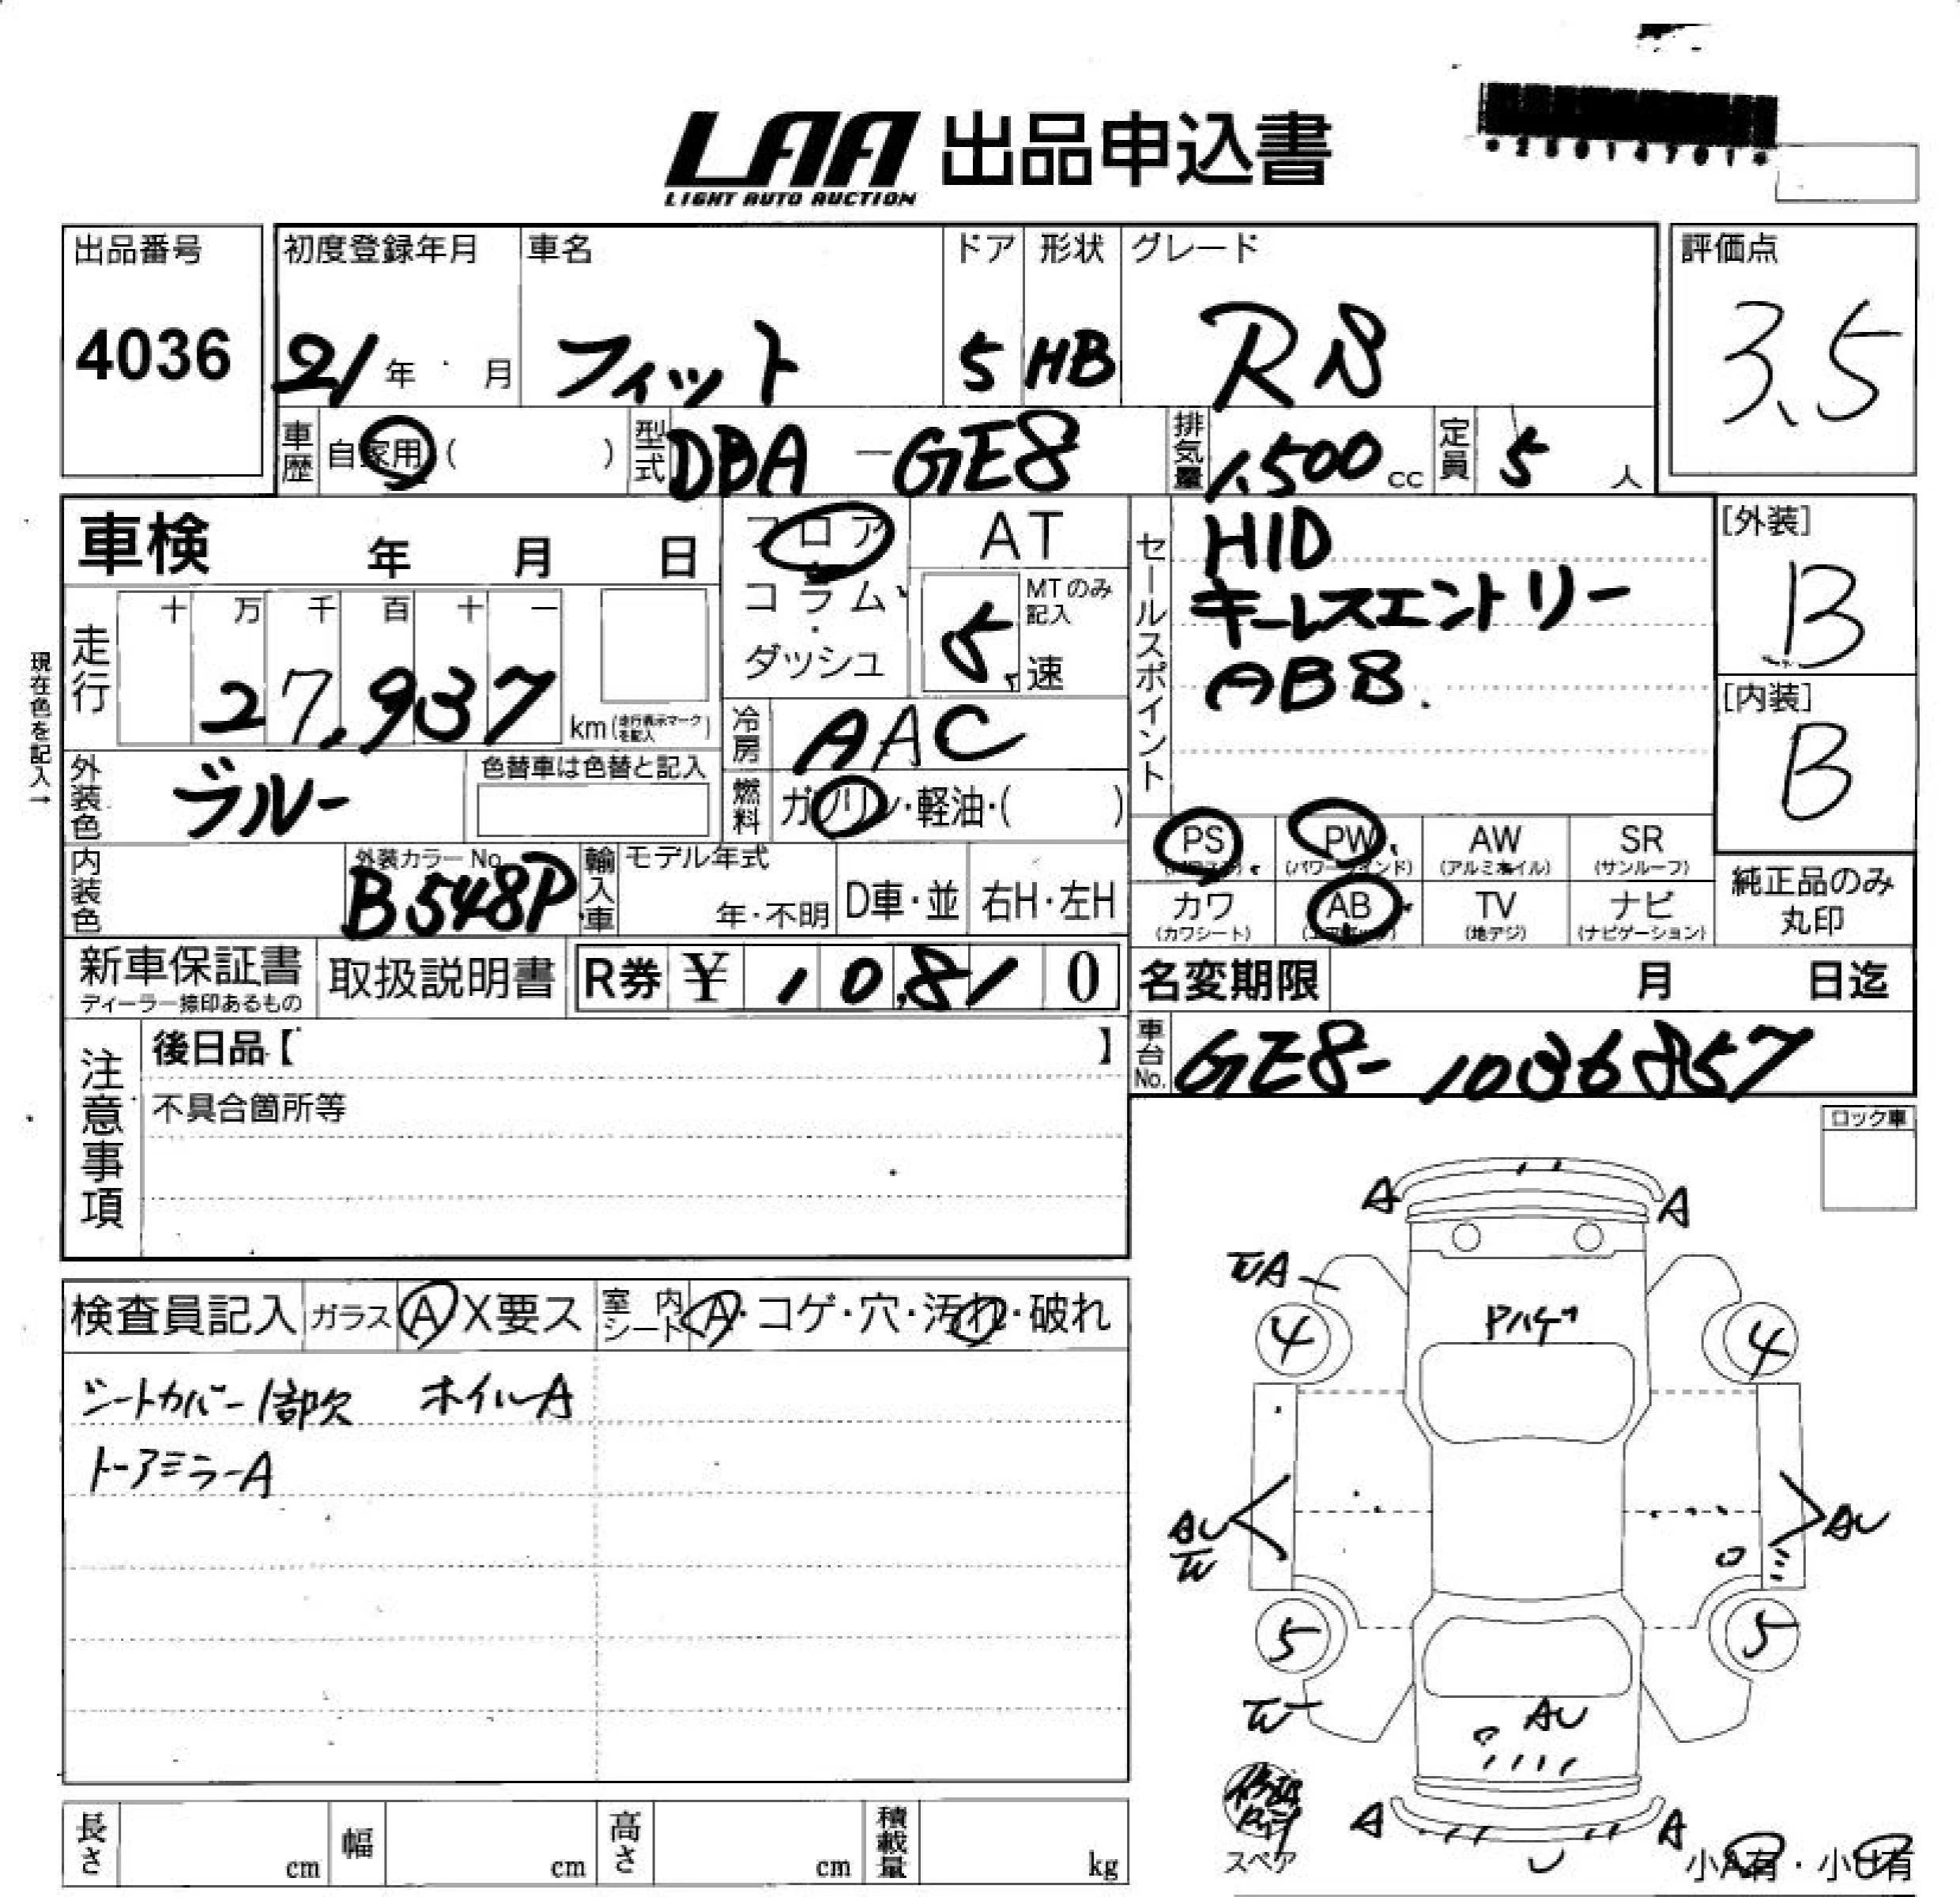 LAA 出品申込書
LIGHT AUTO AUCTION
出品番号
4036
初度登録年月
21年 月
車名
フィット
ドア
5
形状
HB
グレード
RS
評価点
3.5
車歴 自家用 ( )
型式 DBA-GE8
排気量 1,500 cc
定員 5 人
車検 年 月 日
フロア
コラム
ダッシュ
AT
MTのみ記入
5 速
セールスポイント
HID
キーレスエントリー
ABS
[外装]
B
[内装]
B
現在色を記入→
走行
十 万 千 百 十 一
27,937
km (走行表示マークを記入)
冷房 AAC
燃料 ガソリン・軽油・( )
外装色 ブルー
色替車は色替と記入
内装色
外装カラーNo.
B548P
輸入車
モデル年式
年・不明
D車・並
右H・左H
PS
PW (パワーウインド)
AW (アルミホイル)
SR (サンルーフ)
カワ (カワシート)
AB (エアバッグ)
TV (地デジ)
ナビ (ナビゲーション)
純正品のみ
丸印
新車保証書
ディーラー捺印あるもの
取扱説明書
R券 ¥ 10,810
名変期限 月 日迄
車台No. GE8-1036857
注意事項
後日品【 】
不具合箇所等
ロック車
検査員記入
ガラス A X要ス
室内シート A・コゲ・穴・汚れ・破れ
シートカバー1部欠 ホイルA
ドアミラーA
A
A
A
4
Pハゲ
4
AU
AU
5
5
AU
A
A
U
スペア
小A有・小U有
長さ cm
幅 cm
高さ cm
積載量 kg